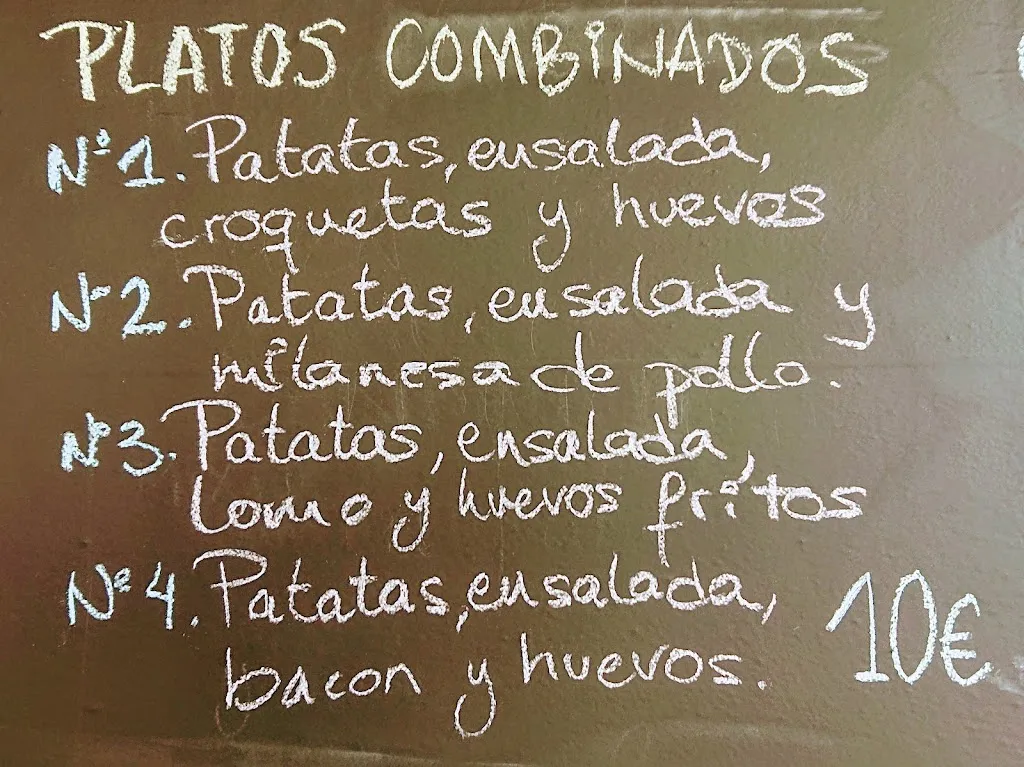 PLATOS COMBINADOS
Nº1. Patatas, ensalada,
croquetas y huevos
Nº2. Patatas, ensalada y
milanesa de pollo.
Nº3. Patatas, ensalada,
lomo y huevos fritos
Nº4. Patatas, ensalada,
bacon y huevos.
10€